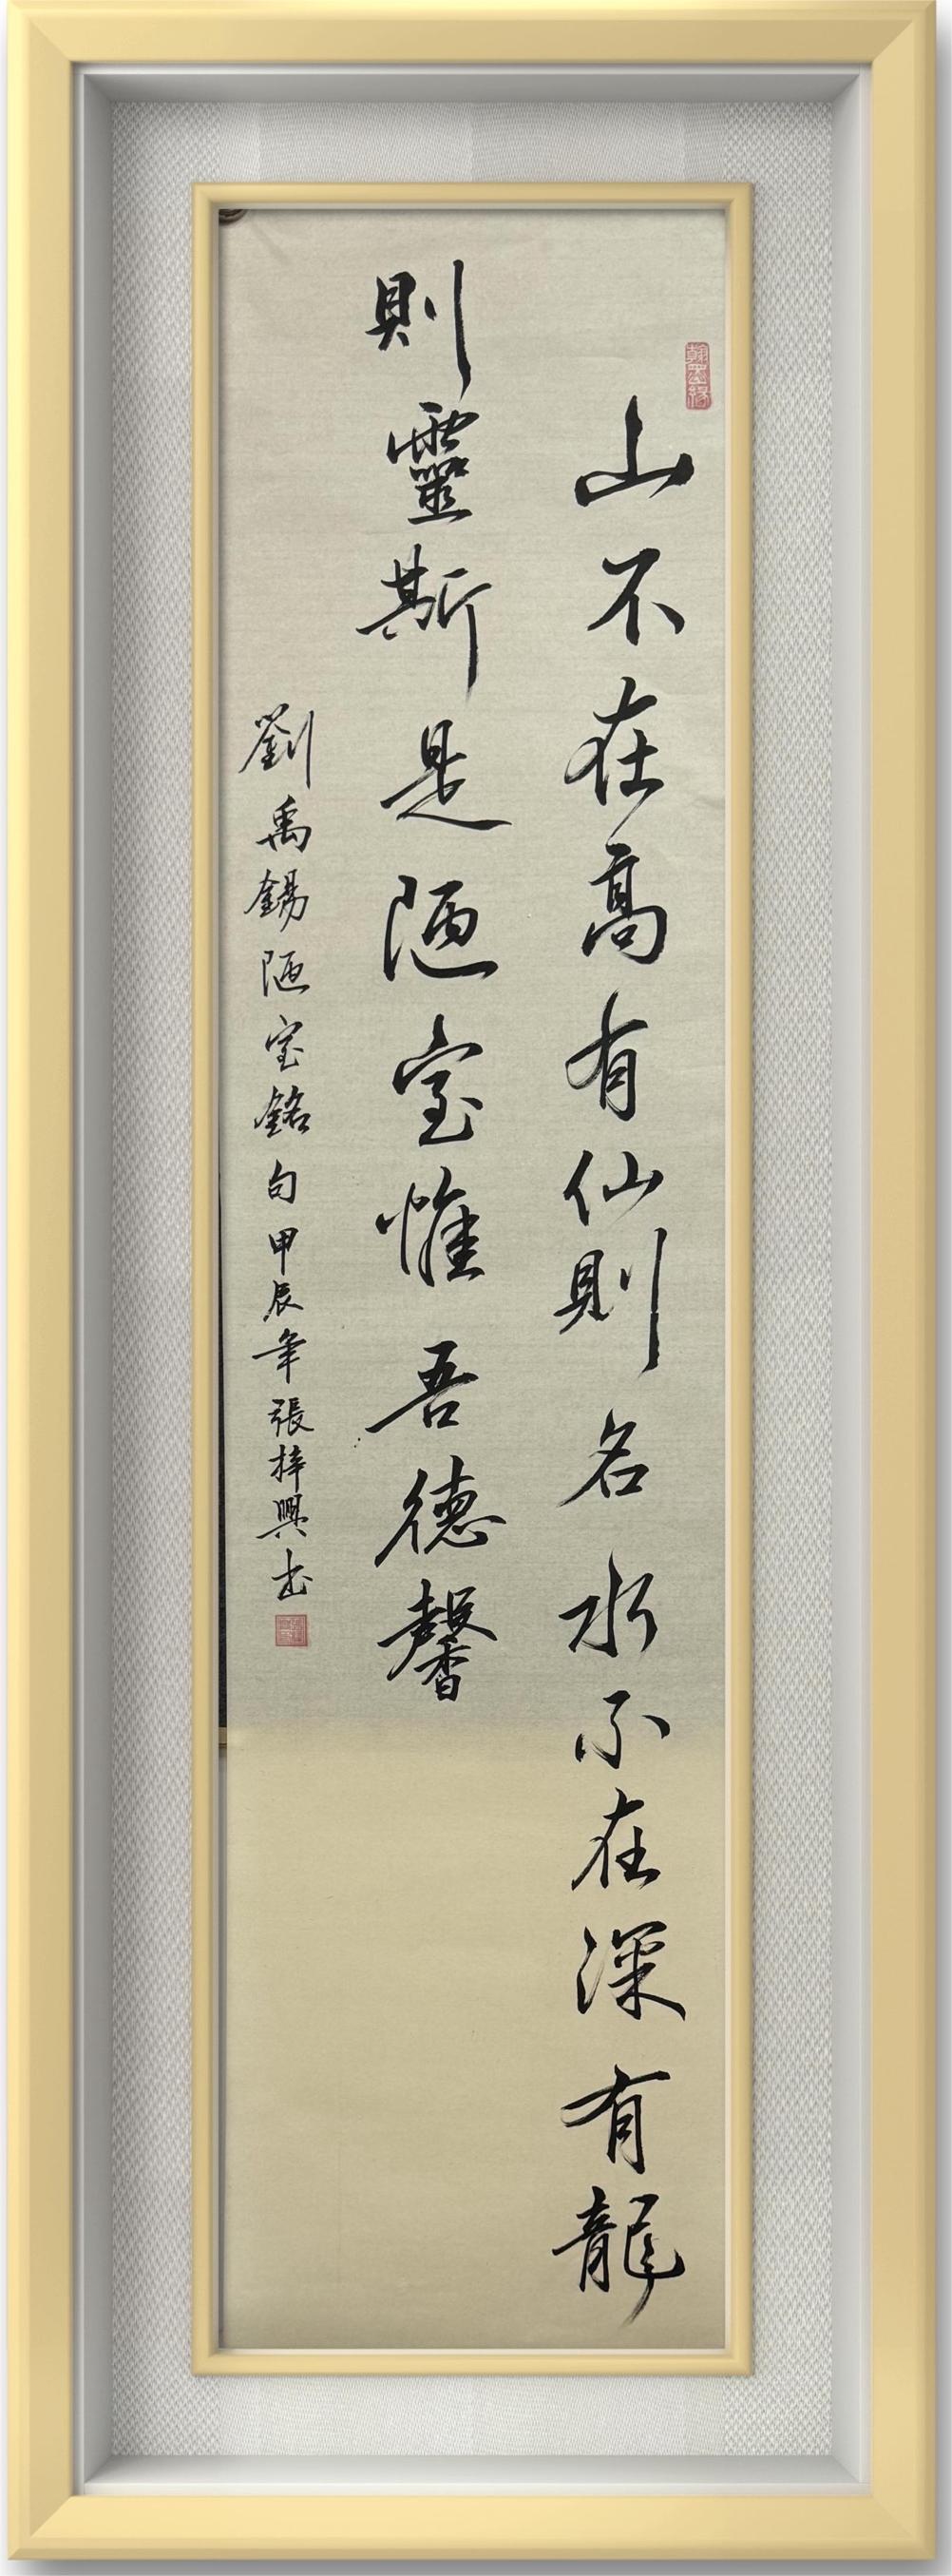 翰墨緣
山不在高有仙則名水不在深有龍
則靈斯是陋室惟吾德馨
劉禹錫陋室銘句甲辰年張梓興书